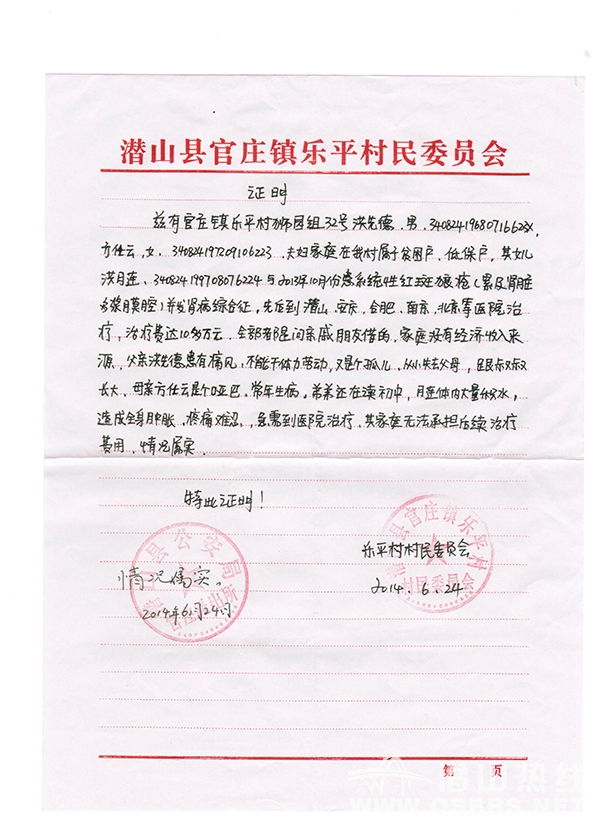 潜山县官庄镇乐平村民委员会
证明
兹有官庄镇乐平村狮园组32号洪先德、男、34082419680716623X,
方仕云,女、340824197209106223、夫妇家庭在我村属于贫困户、低保户,其女儿
洪月莲、340824199708076224与2013年10月份患系统性红斑狼疮(累及肾脏
多浆膜腔)并发肾病综合征,先后到潜山、安庆、合肥、南京、北京等医院治
疗,治疗费达10多万元、全部都是问亲戚朋友借的,家庭没有经济收入来
源,父亲洪先德患有痛风,不能干体力劳动,又是个孤儿、从小失去父母,是跟叔叔
长大、母亲方仕云是个哑巴、常年生病。弟弟还在读初中,月莲体内大量积水,
造成全身肿胀、疼痛难忍、急需到医院治疗、其家庭无法承担后续治疗
费用、情况属实、
特此证明!
乐平村村民委员会
2014.6.24
情况属实。
2014年6月24日
县公安局
县官庄镇乐平村
村民委员会
第 页
潜山热线
WWW.QSRBS.NET